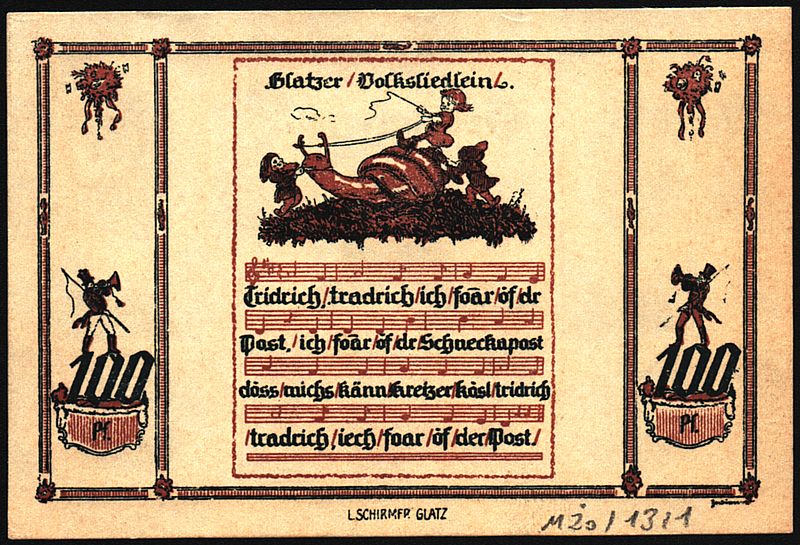 Glatzer / Volksliedlein /.
Tridrich / tradrich / ich / foār / öf / dr
Post, / ich / foār / öf / dr Schneckapost
döss / michs / känn / kretzer / kösl / tridrich
/ tradrich / iech / foar / öf / der Post /
100
Pf.
100
Pf.
L. SCHIRMER GLATZ
MŻo / 131 1